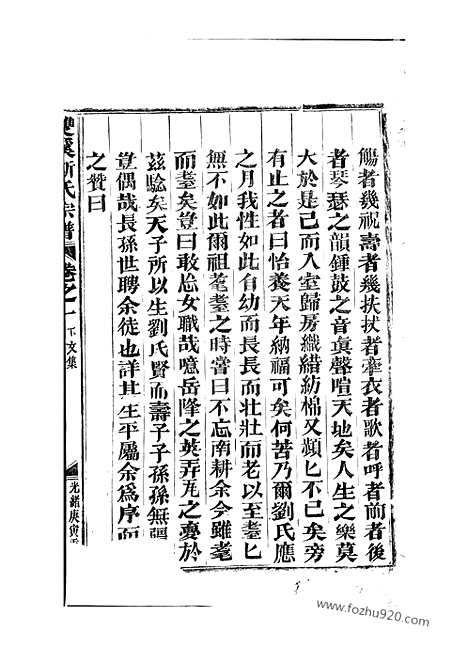 觴者幾祝壽者幾扶扙者牽衣者歌者呼者前者後
者琴瑟之韻鍾鼓之音眞聲喧天地矣人生之樂莫
大於是己而入室歸房織緝紡棉又頻匕不已矣旁
有止之者曰怡養天年納福可矣何苦乃爾劉氏應
之月我性如此自幼而長長而壯壯而老以至耋匕
無不如此爾祖耄耋之時嘗曰不忘南耕余今雖耄
而耋矣豈曰敢怠女職哉噫岳降之英弄瓦之
茲騐矣天子所以生劉氏賢而壽子子孫孫無疆
豈偶哉長孫世聘余徒也詳其生平屬余為序而
之贊曰
雙溪靳氏宗譜
卷之一
下文集
光緒庚寅
www.fozhu920.com